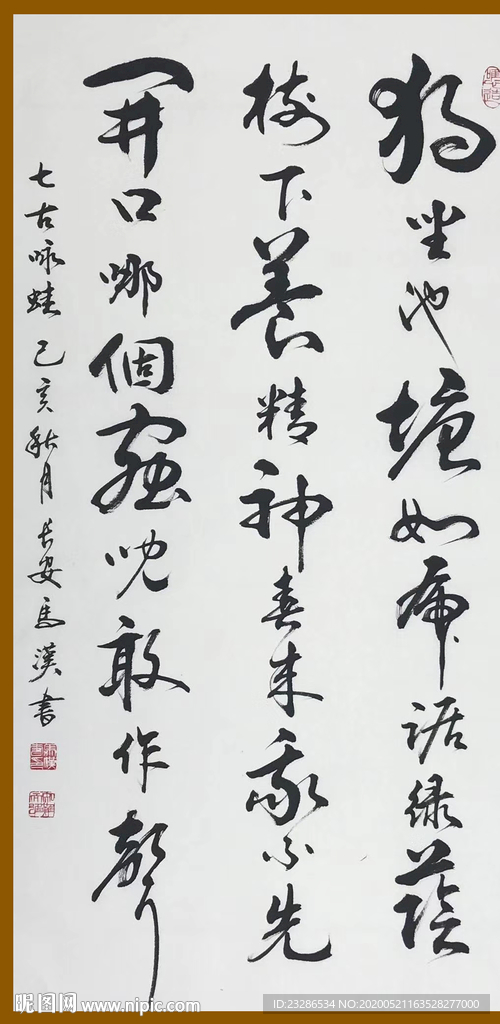 獨坐池塘如虎踞綠蔭
樹下養精神春來我不先
開口哪個蟲兒敢作聲
七古咏蛙己亥秋月長安馬漢書
昵图网 www.nipic.com
ID:23286534 NO:20200521163528277000